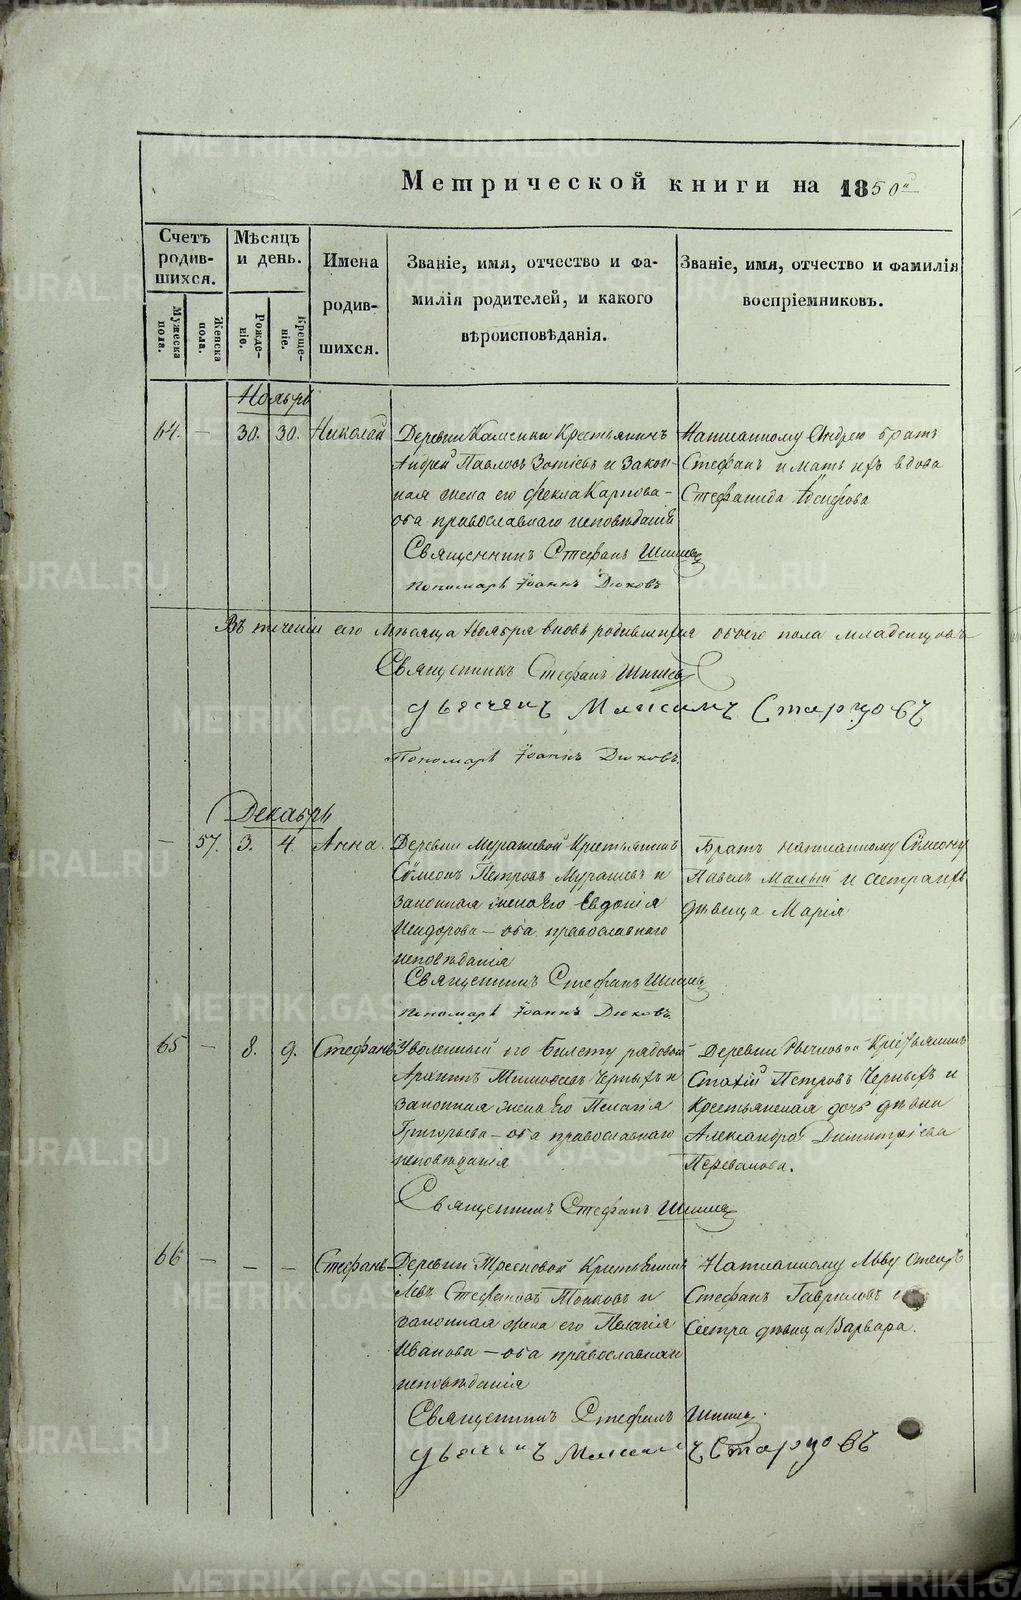 Метрической книги на 1850й
Счетъ родившихся.
Мѣсяцъ и день.
Имена родившихся.
Званіе, имя, отчество и фамилія родителей, и какого вѣроисповѣданія.
Званіе, имя, отчество и фамилія воспріемниковъ.
Мужеска пола.
Женска пола.
Рожденіе.
Крещеніе.
Ноябрь
64. — 30. 30. Николай
Деревни Каменки Крестьянинъ
Андрей Павловъ Зотіевъ и Закон-
ная жена его Фекла Карпова —
оба православнаго исповѣданія
Написанному Андрею братъ
Стефанъ и мать ихъ вдова
Стефанида
Священникъ Стефанъ
Пономарь Іоаннъ Дюковъ
Въ теченіи сего Мѣсяца Ноября вновь родившихся обоего пола младенцовъ
Священникъ Стефанъ
Дьячекъ Максимъ Старцовъ
Пономарь Іоаннъ Дюковъ.
Декабрь
— 57. 3. 4. Анна.
Деревни Мурашевой Крестьянинъ
Сѵмеонъ Петровъ Мурашевъ и
законная жена Его Евдокія
Исидорова — оба православнаго
исповѣданія
Братъ написанному Сѵмеону
Павелъ Малый и сестра ихъ
дѣвица Марія
Священникъ Стефанъ
Пономарь Іоаннъ Дюковъ.
65 — 8. 9. Стефанъ
Уволенный по билету рядовой
Архипъ Тимофеевъ Черныхъ и
законная жена Его Пелагія
Григорьева — оба православнаго
исповѣданія
Деревни Крестьянинъ
Стахій Петровъ Черныхъ и
Крестьянская дочь дѣвка
Александра Димитріева
Перевалова.
Священникъ Стефанъ
66 — — — Стефанъ
Деревни Крестьянинъ
Левъ Стефановъ и
законная жена его Пелагія
Иванова — оба православнаго
исповѣданія
Написанному Льву отецъ
Стефанъ Гавриловъ и
Сестра дѣвица Варвара.
Священникъ Стефанъ
Дьячекъ Максимъ Старцовъ
METRIKI.GASO-URAL.RU